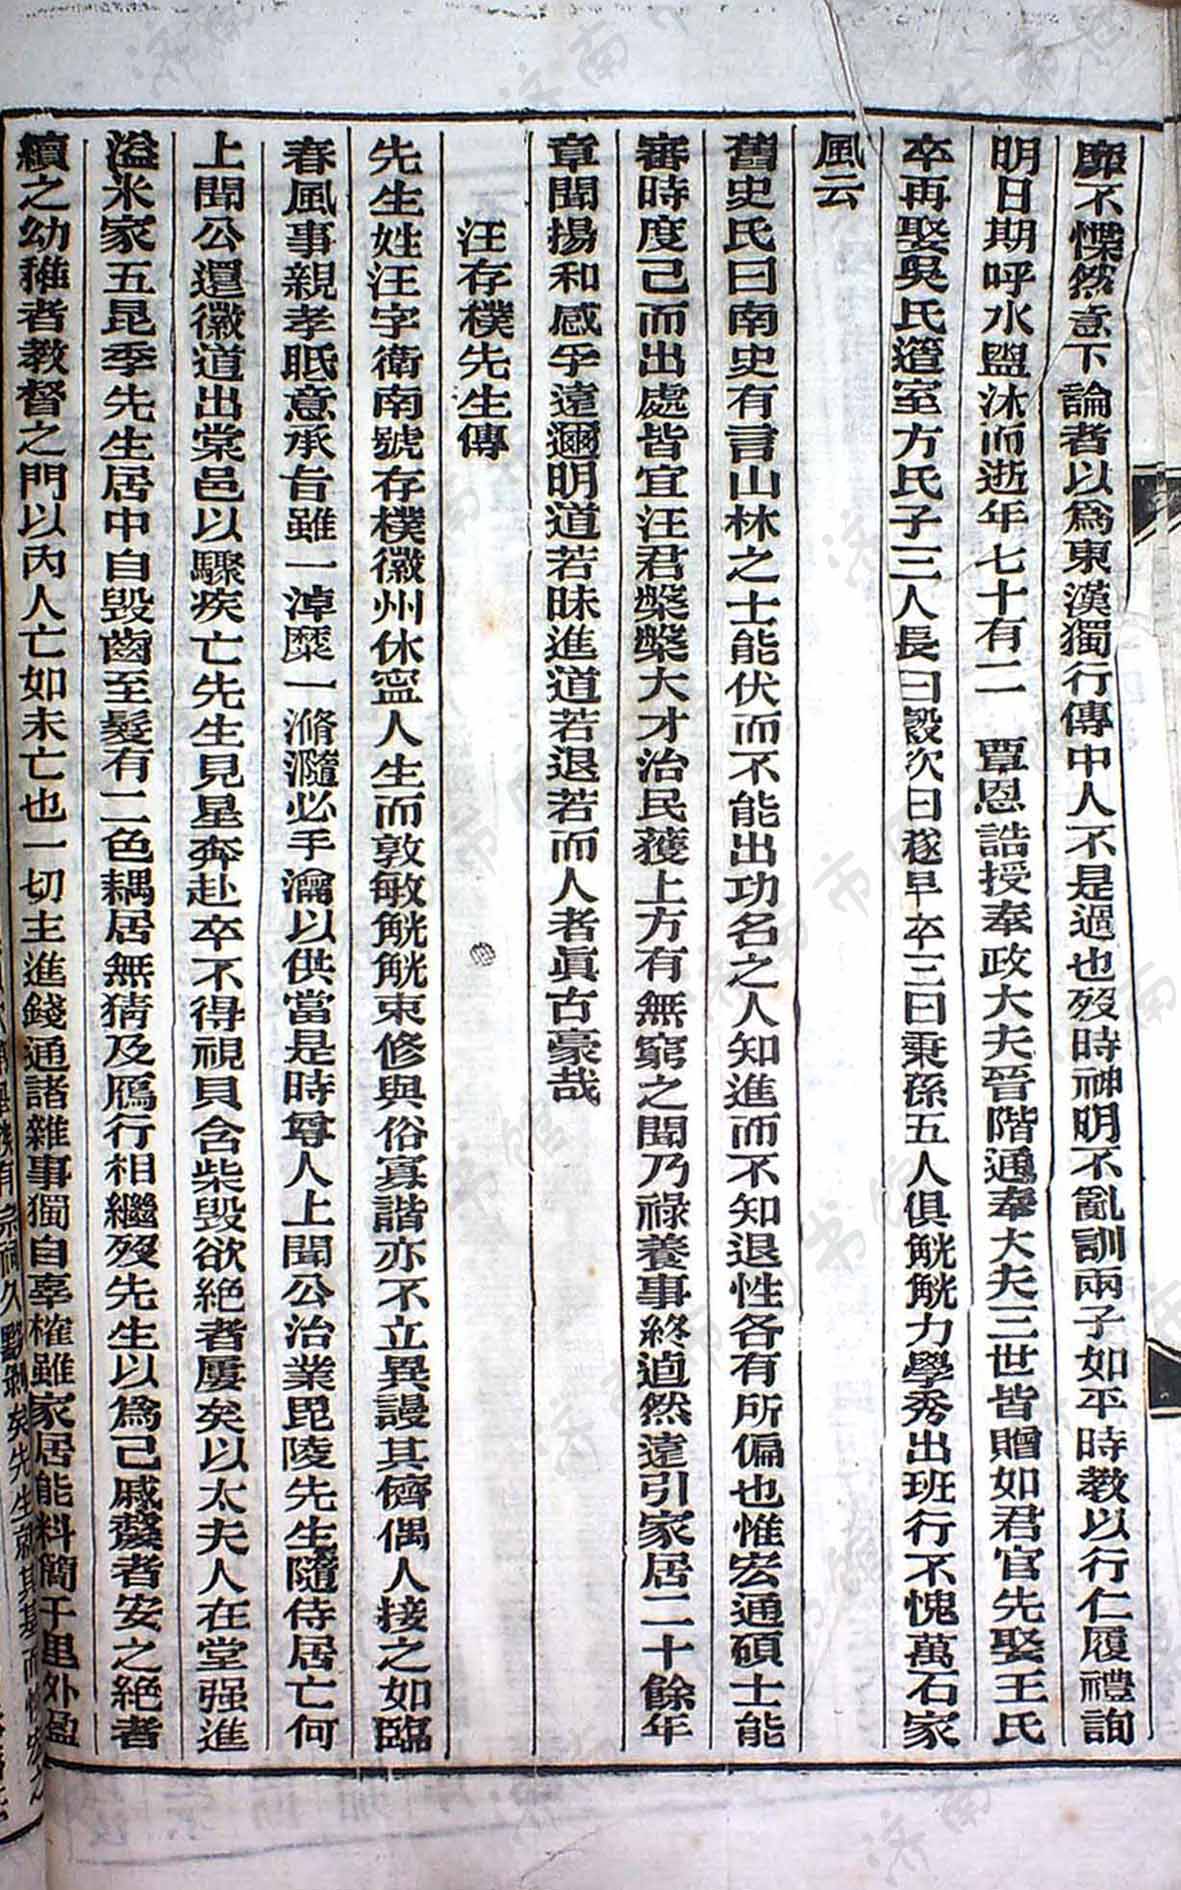 靡不慄然意下論者以爲東漢獨行傳中人不是過也歿時神明不亂訓兩子如平時教以行仁履禮詢
明日期呼水盥沐而逝年七十有二　覃恩誥授奉政大夫晉階通奉大夫三世皆贈如君官先娶王氏
卒再娶吳氏簉室方氏子三人長曰毅次曰遂早卒三曰秉孫五人俱觥觥力學秀出班行不愧萬石家
風云
舊史氏曰南史有言山林之士能伏而不能出功名之人知進而不知退性各有所偏也惟宏通碩士能
審時度己而出處皆宜汪君槃槃大才治民獲上方有無窮之聞乃祿養事終逌然遠引家居二十餘年
章聞揚和感孚遠邇明道若昧進道若退若而人者眞古豪哉
汪存樸先生傳
先生姓汪字衛南號存樸徽州休寧人生而敦敏觥觥束修與俗寡諧亦不立異謾其儕偶人接之如臨
春風事親孝眂意承旨雖一淖糜一滫瀡必手瀹以供當是時尊人上聞公治業毘陵先生隨侍居亡何
上聞公還徽道出棠邑以驟疾亡先生見星奔赴卒不得視貝含柴毀欲絕者屢矣以太夫人在堂强進
溢米家五昆季先生居中自毀齒至髮有二色耦居無猜及鴈行相繼歿先生以爲己戚嫠者安之絕者
續之幼稚者教督之門以內人亡如未亡也一切主進錢通諸雜事獨自辜榷雖家居能料簡千里外盈